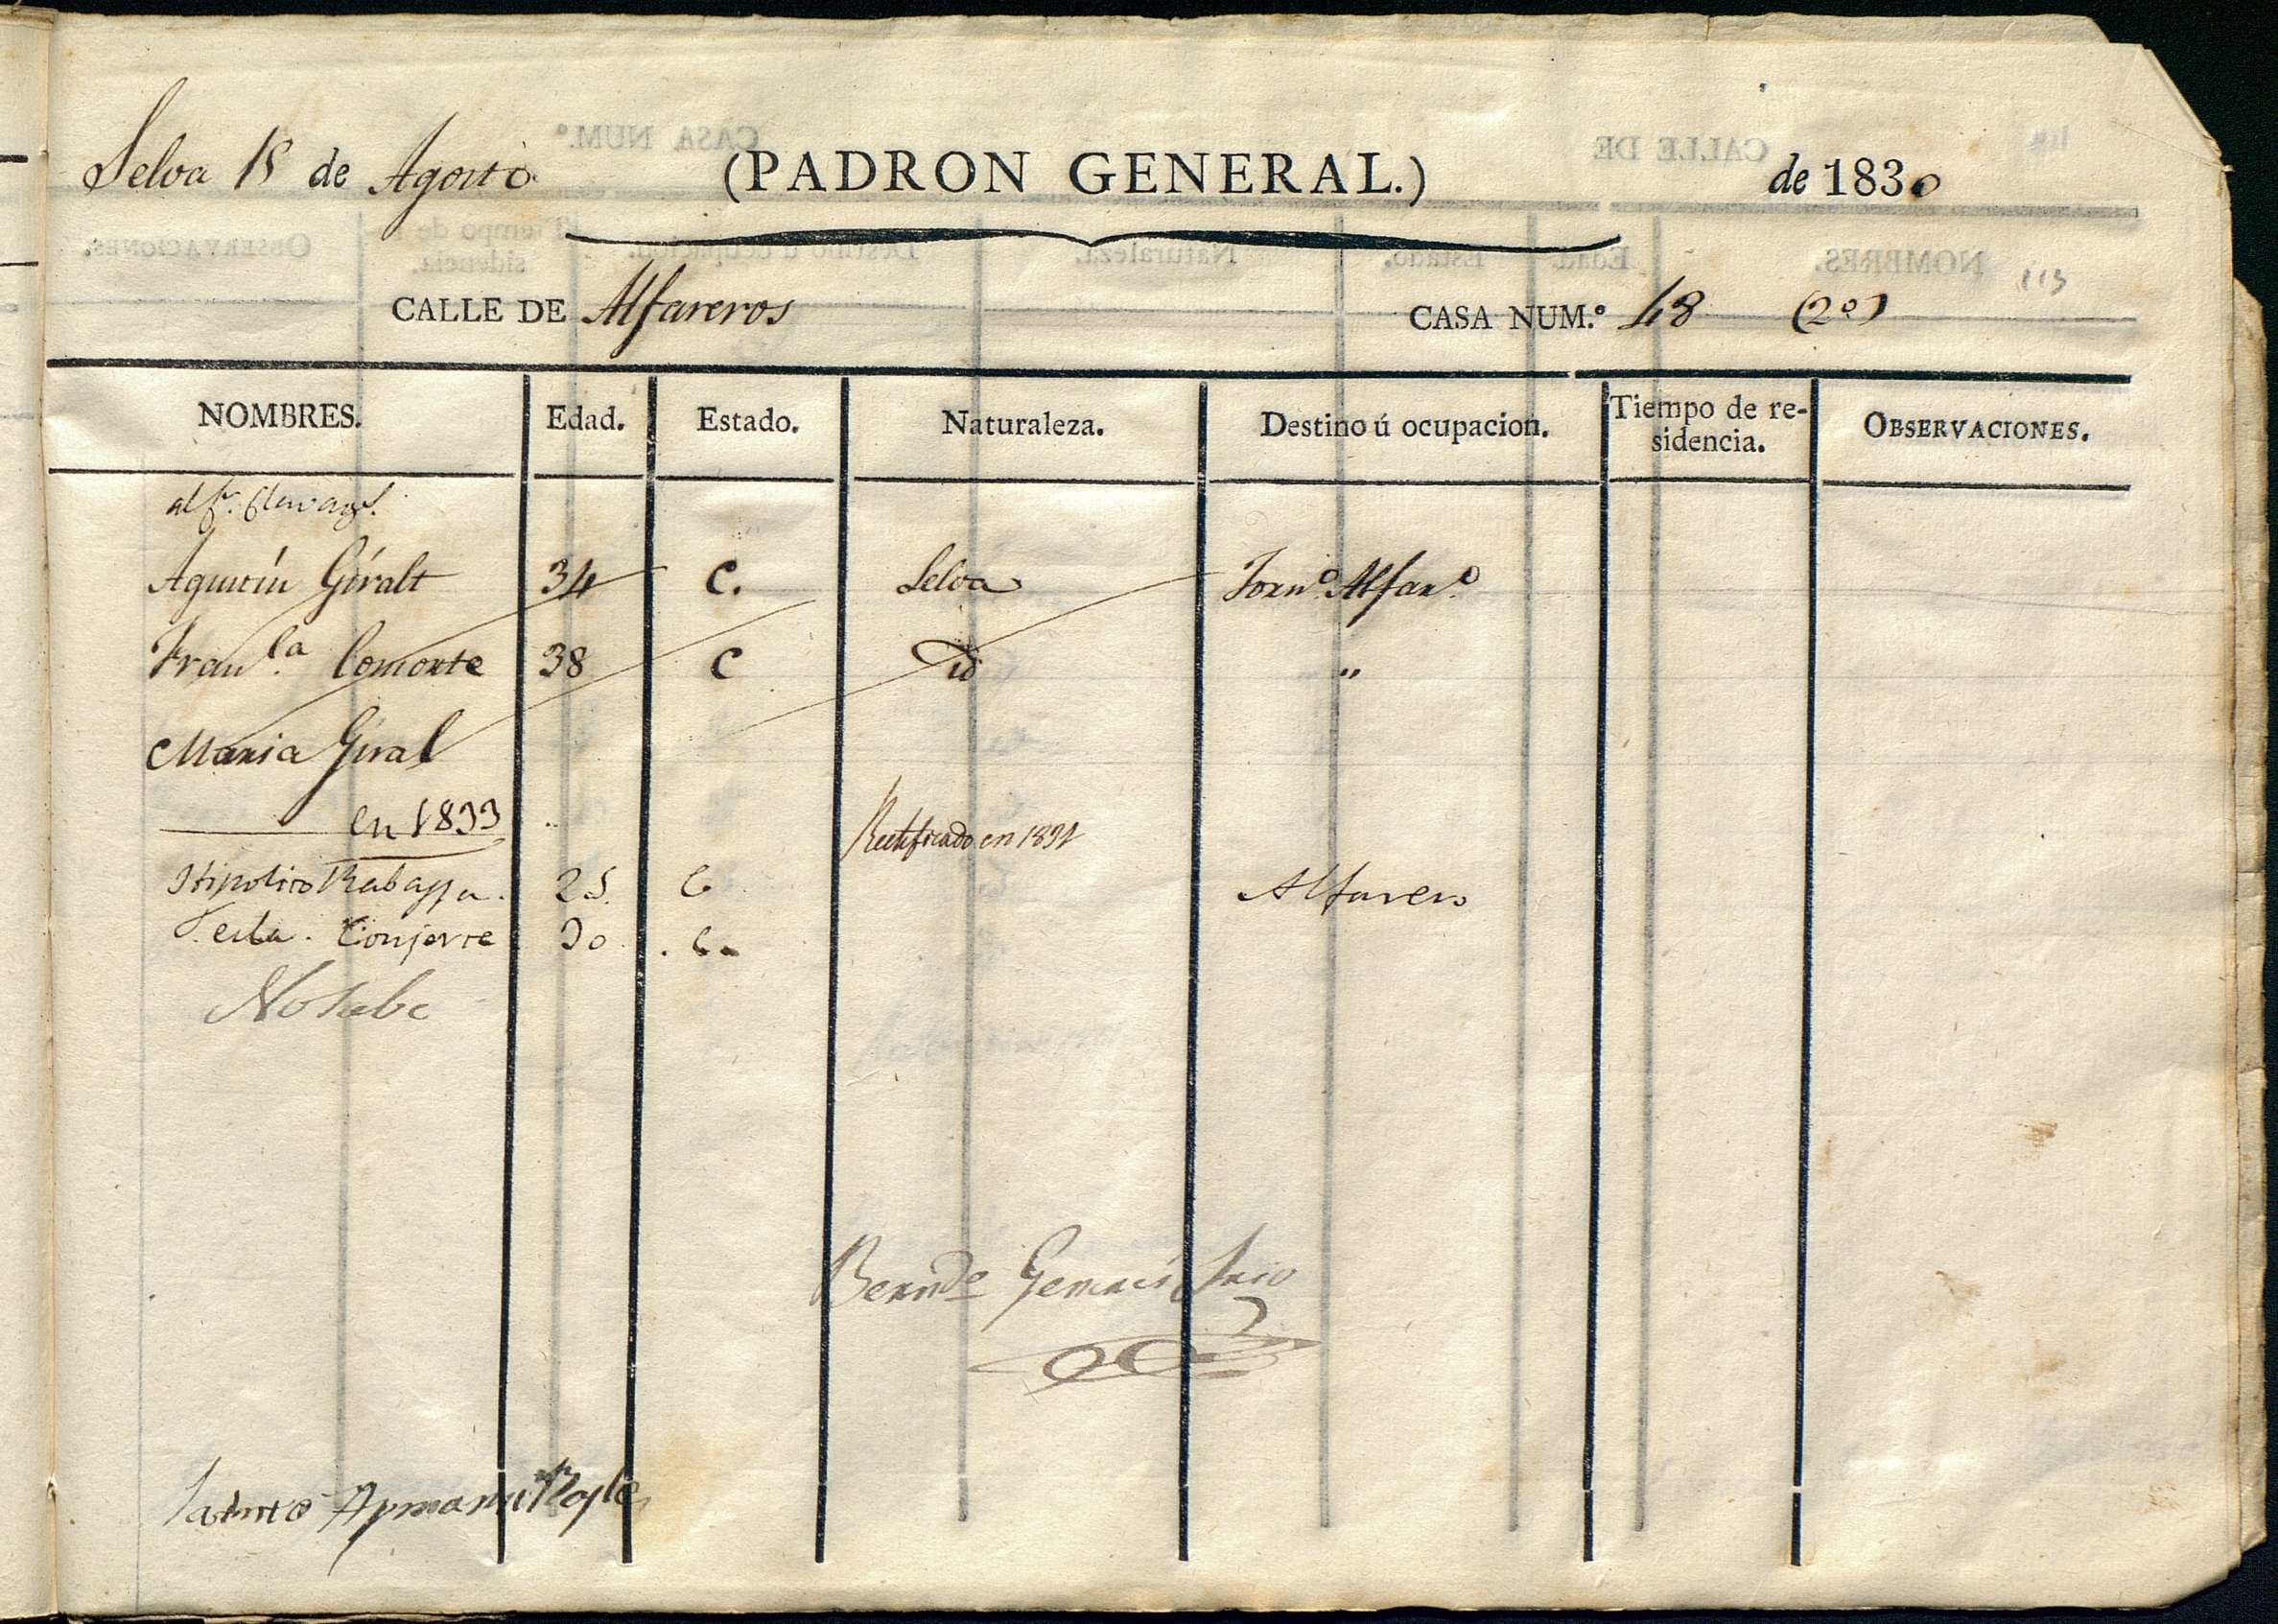 Selva 15 de Agosto (PADRON GENERAL.) de 1830
113
CALLE DE Alfareros CASA NUM.º 48 (2º)
NOMBRES. Edad. Estado. Naturaleza. Destino ú ocupacion. Tiempo de re-sidencia. OBSERVACIONES.
Agustín Giralt 34 C. Selva Jornº. Alfarº.
Franca. Comorte 38 C id "
Maria Giral
en 1833 Rectificado en 1831
Hipolito Rabassa. 25. C Alfarero
Tecla. 30. C.
No sabe